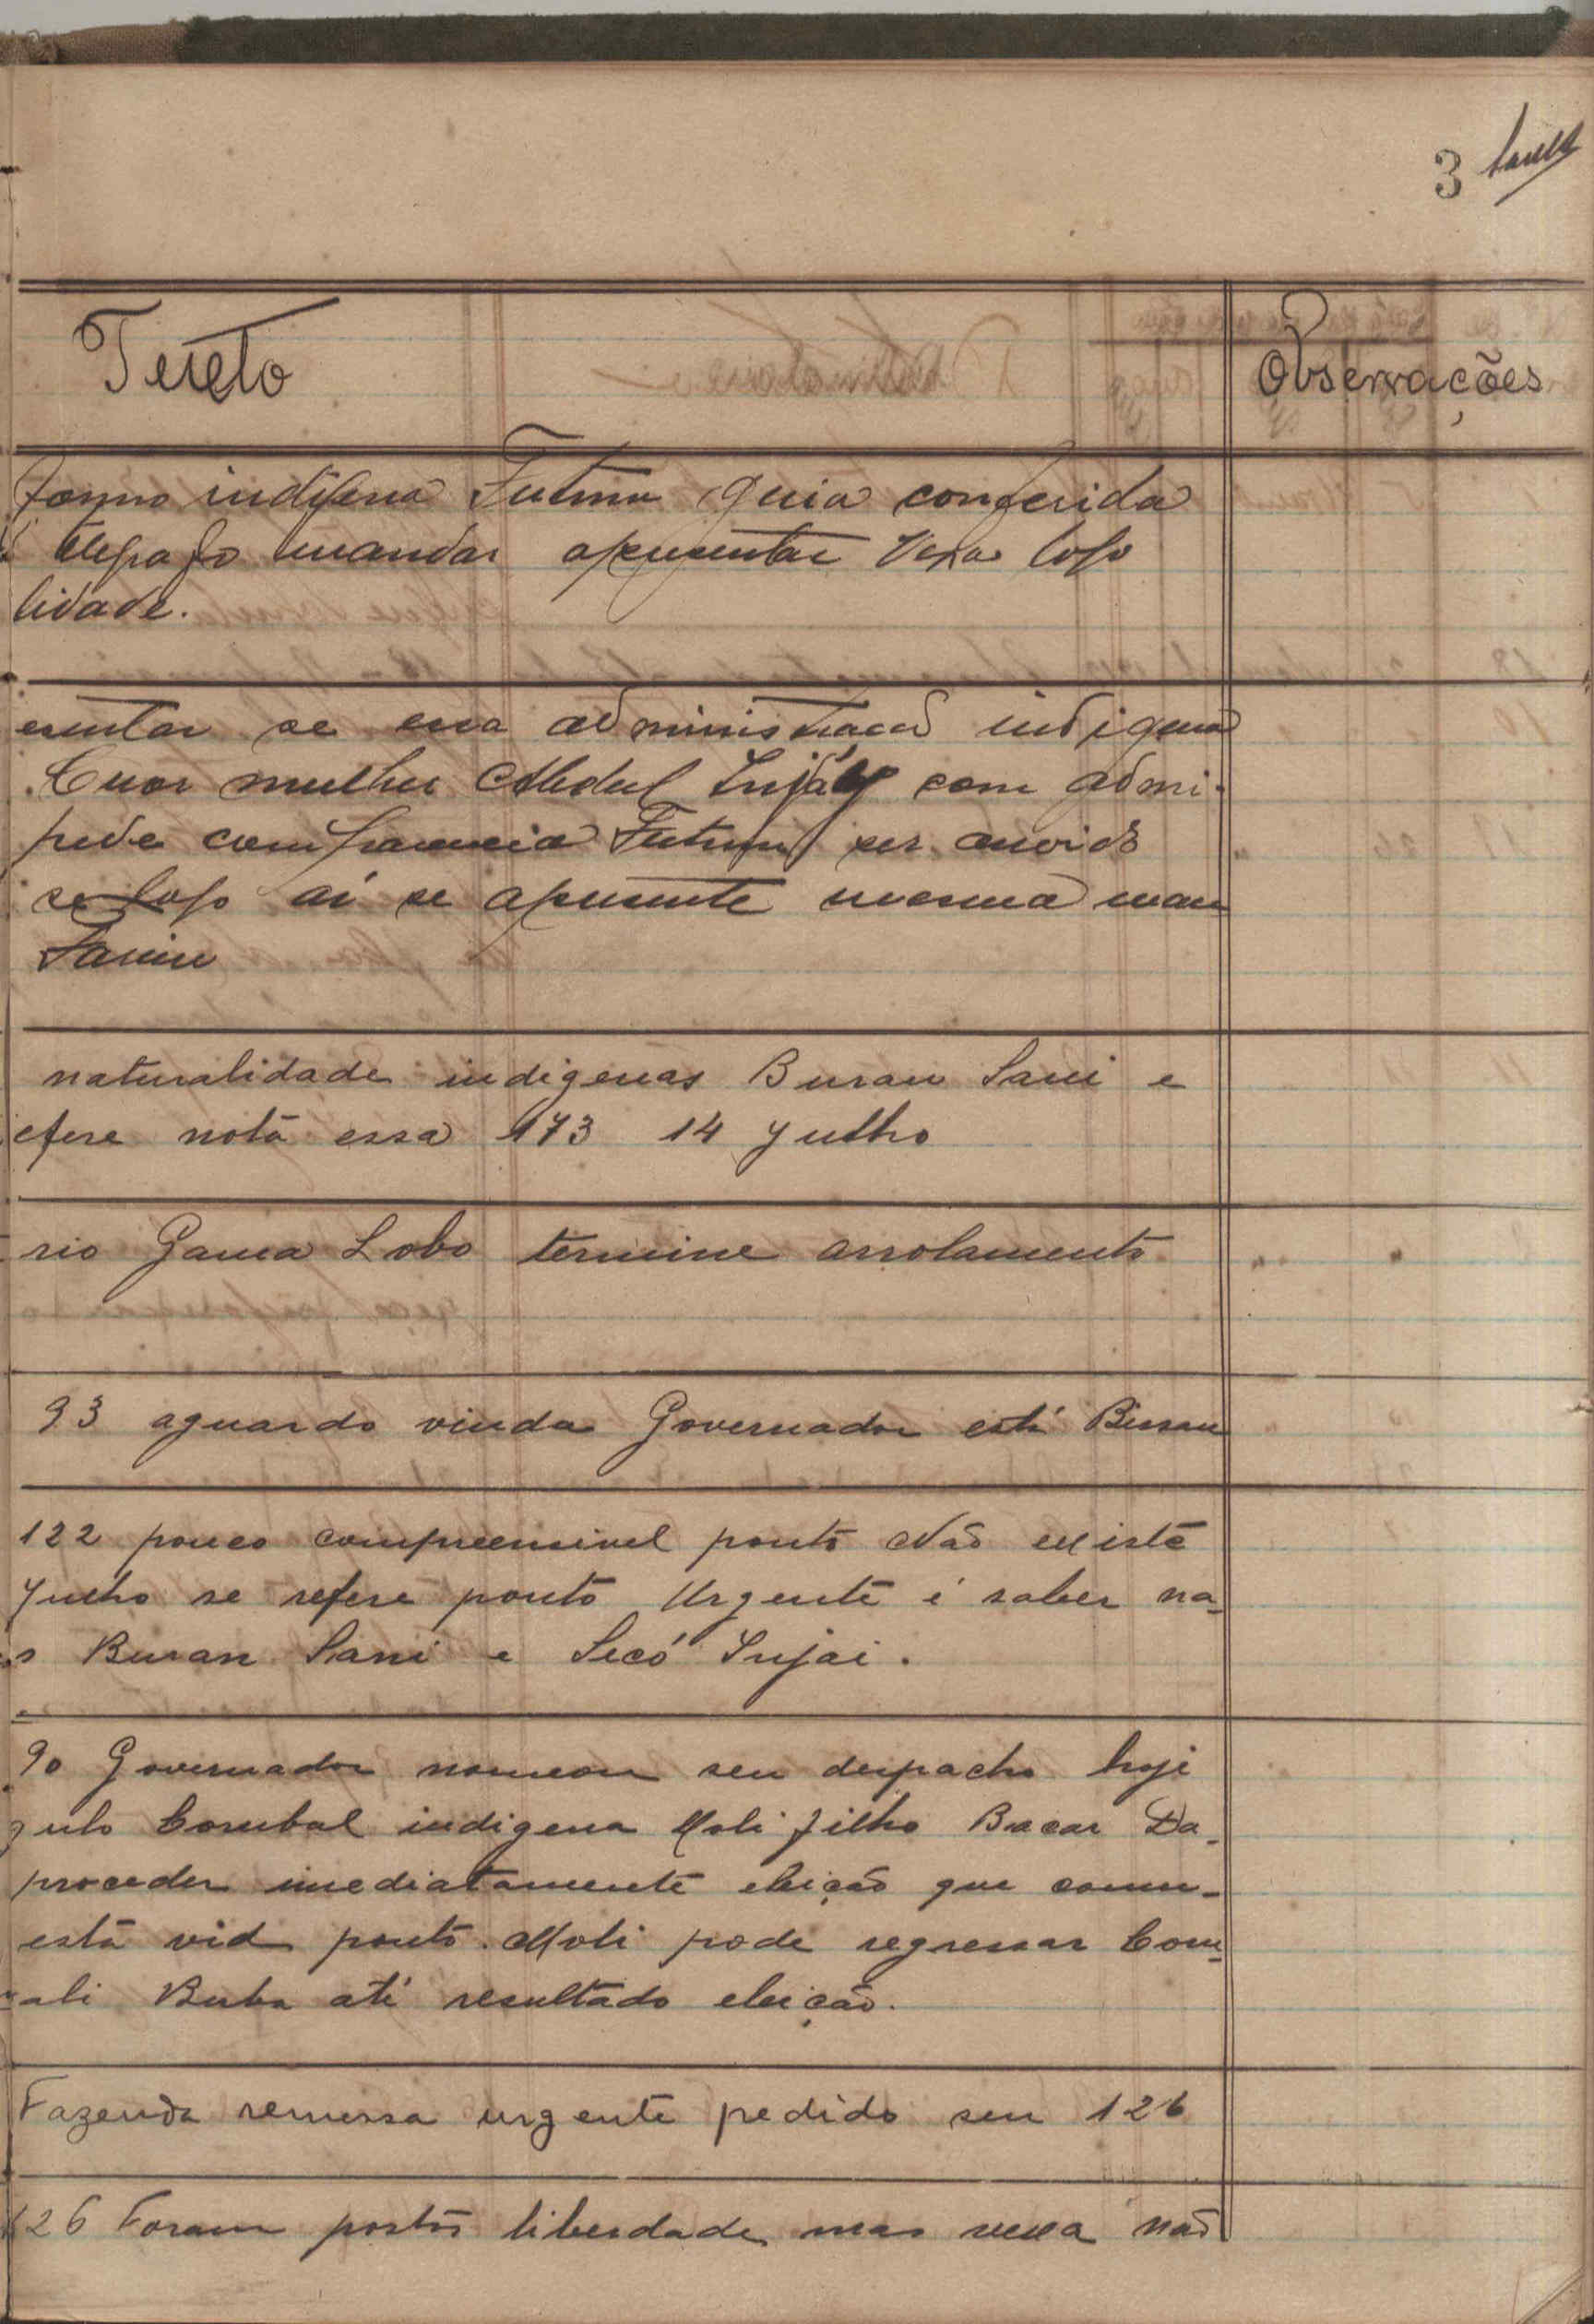 3
Texto
Observações
indigena Fatma guia conferida
mandar apresentar Vexa logo
lidade.
esentar se essa administração indigena
Cuor mulher Injáy com admi-
pede Fatma ser ouvido
se logo aí se apresente mesma man
naturalidade indigenas Buran Sani e
efere nota essa 173 14 Julho
rio Gama Lobo termine arrolamento
93 aguardo vinda Governador está Bissau
122 pouco compreensivel ponto Não existe
Julho se refere ponto Urgente é saber na-
s Buran Sani e Secó Injai.
90 Governador nomeou seu despacho hoje
gulo Corubal indigena Moli filho Bacar Da-
proceder imediatamente eleição que comu-
está vid ponto. Moli pode regressar Coru-
ali Buba até resultado eleição.
Fazenda remessa urgente pedido seu 126
126 Foram postos liberdade mas vexa não